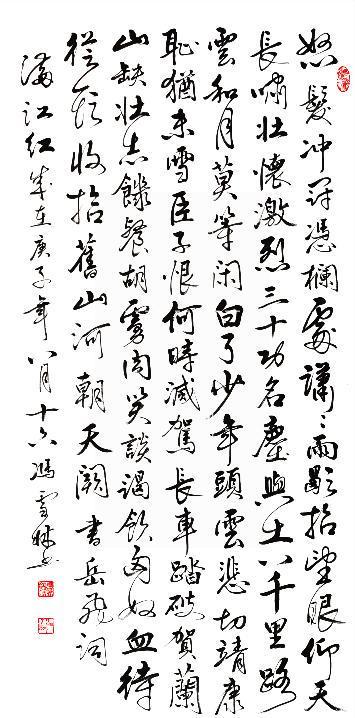 怒髮冲冠憑欄處瀟〻雨歇抬望眼仰天
長嘯壯懷激烈三十功名塵與土八千里路
雲和月莫等闲白了少年頭空悲切靖康
恥猶未雪臣子恨何時滅駕長車踏破賀蘭
山缺壯志饑餐胡虜肉笑談渴飲匈奴血待
從頭收拾舊山河朝天闕書岳飛詞
滿江红歲在庚子年八月十六馮雪林书